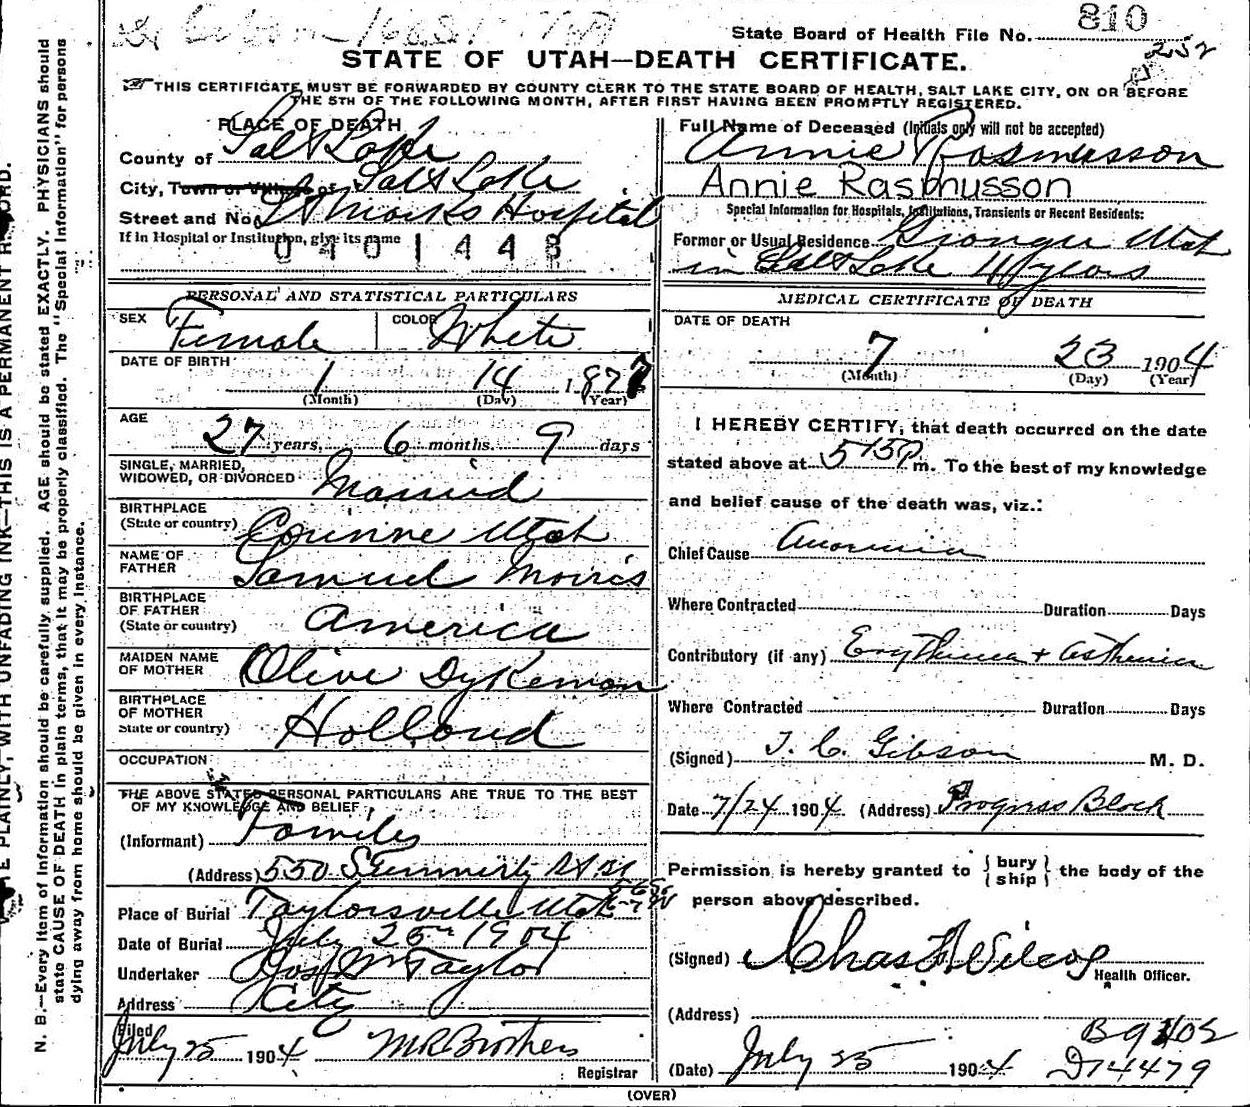 810
State Board of Health File No.
252
STATE OF UTAH—DEATH CERTIFICATE.
THIS CERTIFICATE MUST BE FORWARDED BY COUNTY CLERK TO THE STATE BOARD OF HEALTH, SALT LAKE CITY, ON OR BEFORE
THE 5TH OF THE FOLLOWING MONTH, AFTER FIRST HAVING BEEN PROMPTLY REGISTERED.
PLACE OF DEATH
County of Salt Lake
City, Town or Village of Salt Lake
Street and No. St Marks Hospital
If in Hospital or Institution, give its name
0401448
PERSONAL AND STATISTICAL PARTICULARS
SEX Female COLOR White
DATE OF BIRTH
1 14 1877
(Month) (Day) (Year)
AGE
27 years, 6 months. 9 days
SINGLE, MARRIED,
WIDOWED, OR DIVORCED Married
BIRTHPLACE
(State or country) Corinne Utah
NAME OF
FATHER Samuel Morris
BIRTHPLACE
OF FATHER
(State or country) America
MAIDEN NAME
OF MOTHER Olive Dykeman
BIRTHPLACE
OF MOTHER
State or country) Holland
OCCUPATION
THE ABOVE STATED PERSONAL PARTICULARS ARE TRUE TO THE BEST
OF MY KNOWLEDGE AND BELIEF
(Informant)
(Address) 550
Place of Burial Taylorsville Utah
Date of Burial July 25 1904
Undertaker Jos Wm Taylor
Address City
Filed
July 25 1904 M R Brothers
Registrar
Full Name of Deceased (Initials only will not be accepted)
Annie Rasmusson
Annie Rasmusson
Special Information for Hospitals, Institutions, Transients or Recent Residents:
Former or Usual Residence Granger Utah
in Salt Lake years
MEDICAL CERTIFICATE OF DEATH
DATE OF DEATH
7 23 1904
(Month) (Day) (Year)
I HEREBY CERTIFY, that death occurred on the date
stated above at 515 P m. To the best of my knowledge
and belief cause of the death was, viz.:
Chief Cause Anaemia
Where Contracted Duration Days
Contributory (if any) + Asthenia
Where Contracted Duration Days
(Signed) Gibson M. D.
Date 7/24 1904 (Address) Progress Block
Permission is hereby granted to { bury
ship } the body of the
person above described.
(Signed) Chas F Wilcox
Health Officer.
(Address)
(Date) July 25 1904
D14479
(OVER)
N. B.—Every item of information should be carefully supplied. AGE should be stated EXACTLY. PHYSICIANS should
state CAUSE OF DEATH in plain terms, that it may be properly classified. The "Special Information" for persons
dying away from home should be given in every instance.
PLAINLY, WITH UNFADING INK—THIS IS A PERMANENT RECORD.